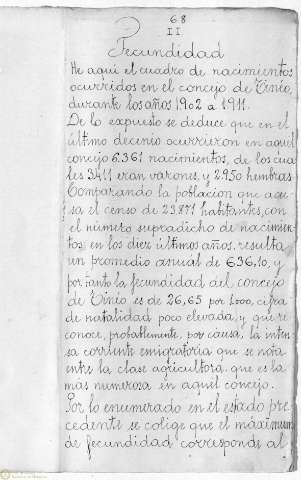 68
II
Fecundidad
He aqui el cuadro de nacimientos
ocurridos en el concejo de Tineo,
durante los años 1902 a 1911.
De lo expuesto se deduce que en el
último decenio ocurrieron en aquel
concejo 6.361 nacimientos, de los cua
les 3411 eran varones, y 2950 hembras
Comparando la poblacion que acu-
sa el censo de 23871 habitantes, con
el número supradicho de nacimien-
tos, en los diez últimos años, resulta
un promedio anual de 636,10, y
por tanto la fecundidad del concejo
de Tineo es de 26,65 por 1.000, cifra
de natalidad poco elevada, y que re
conoce, probablemente, por causa, la inten
sa corriente emigratoria que se nota
entre la clase agricultora, que es la
mas numerosa en aquel concejo.
Por lo enumerado en el estado pre
cedente se colige que el máximum
de fecundidad corresponde al